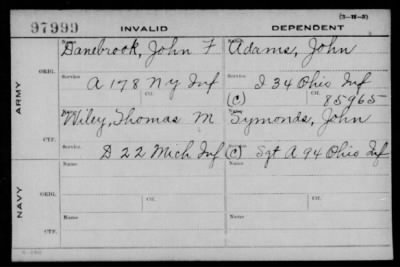 97999 INVALID DEPENDENT (3-18-3)
ARMY
ORIG.
Name Danebrook, John F. Name Adams, John
Service A 178 N Y Inf Service I 34 Ohio Inf
Ctf. (C) Ctf. 85965
CTF.
Name Wiley, Thomas M Symonds, John
D 22 Mich Inf (C) Sgt A 94 Ohio Inf
NAVY
ORIG.
Name Name
Service Service
CTF.
Name Name